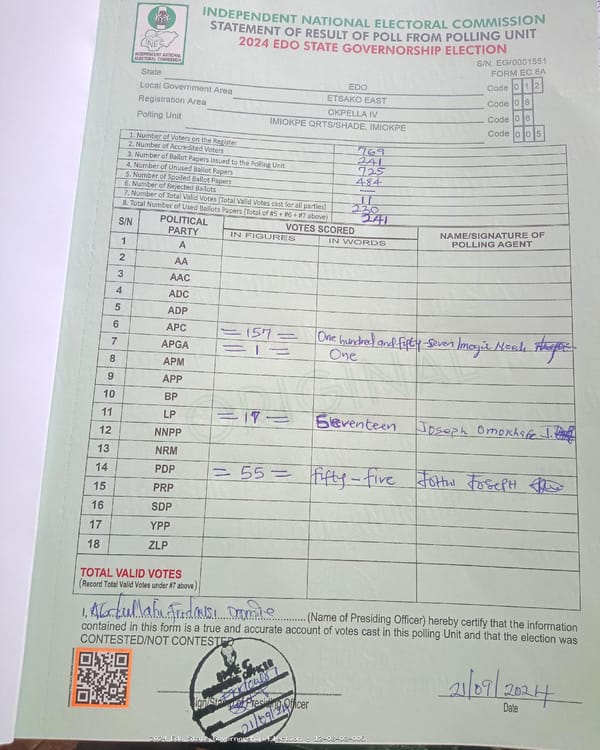 INDEPENDENT NATIONAL ELECTORAL COMMISSION
STATEMENT OF RESULT OF POLL FROM POLLING UNIT
2024 EDO STATE GOVERNORSHIP ELECTION
INEC
INDEPENDENT NATIONAL ELECTORAL COMMISSION
S/N: EG/0001551
FORM EC 8A
State EDO Code 0 1 2
Local Government Area ETSAKO EAST Code 0 8
Registration Area OKPELLA IV Code 0 8
Polling Unit IMIOKPE QRTS/SHADE, IMIOKPE Code 0 0 5
1. Number of Voters on the Register 769
2. Number of Accredited Voters 241
3. Number of Ballot Papers Issued to the Polling Unit 725
4. Number of Unused Ballot Papers 484
5. Number of Spoiled Ballot Papers —
6. Number of Rejected Ballots 11
7. Number of Total Valid Votes (Total Valid Votes cast for all parties) 230
8. Total Number of Used Ballots Papers (Total of #5 + #6 + #7 above) 241
S/N POLITICAL PARTY VOTES SCORED NAME/SIGNATURE OF POLLING AGENT
IN FIGURES IN WORDS
1 A
2 AA
3 AAC
4 ADC
5 ADP
6 APC = 157 = One hundred and fifty-seven
7 APGA = 1 = One
8 APM
9 APP
10 BP
11 LP = 17 = Seventeen Joseph
12 NNPP
13 NRM
14 PDP = 55 = fifty-five JOHN JOSEPH
15 PRP
16 SDP
17 YPP
18 ZLP
TOTAL VALID VOTES
(Record Total Valid Votes under #7 above)
I, Abdullahi (Name of Presiding Officer) hereby certify that the information
contained in this form is a true and accurate account of votes cast in this polling Unit and that the election was
CONTESTED/NOT CONTESTED
Presiding Officer
21/09/2024
Date